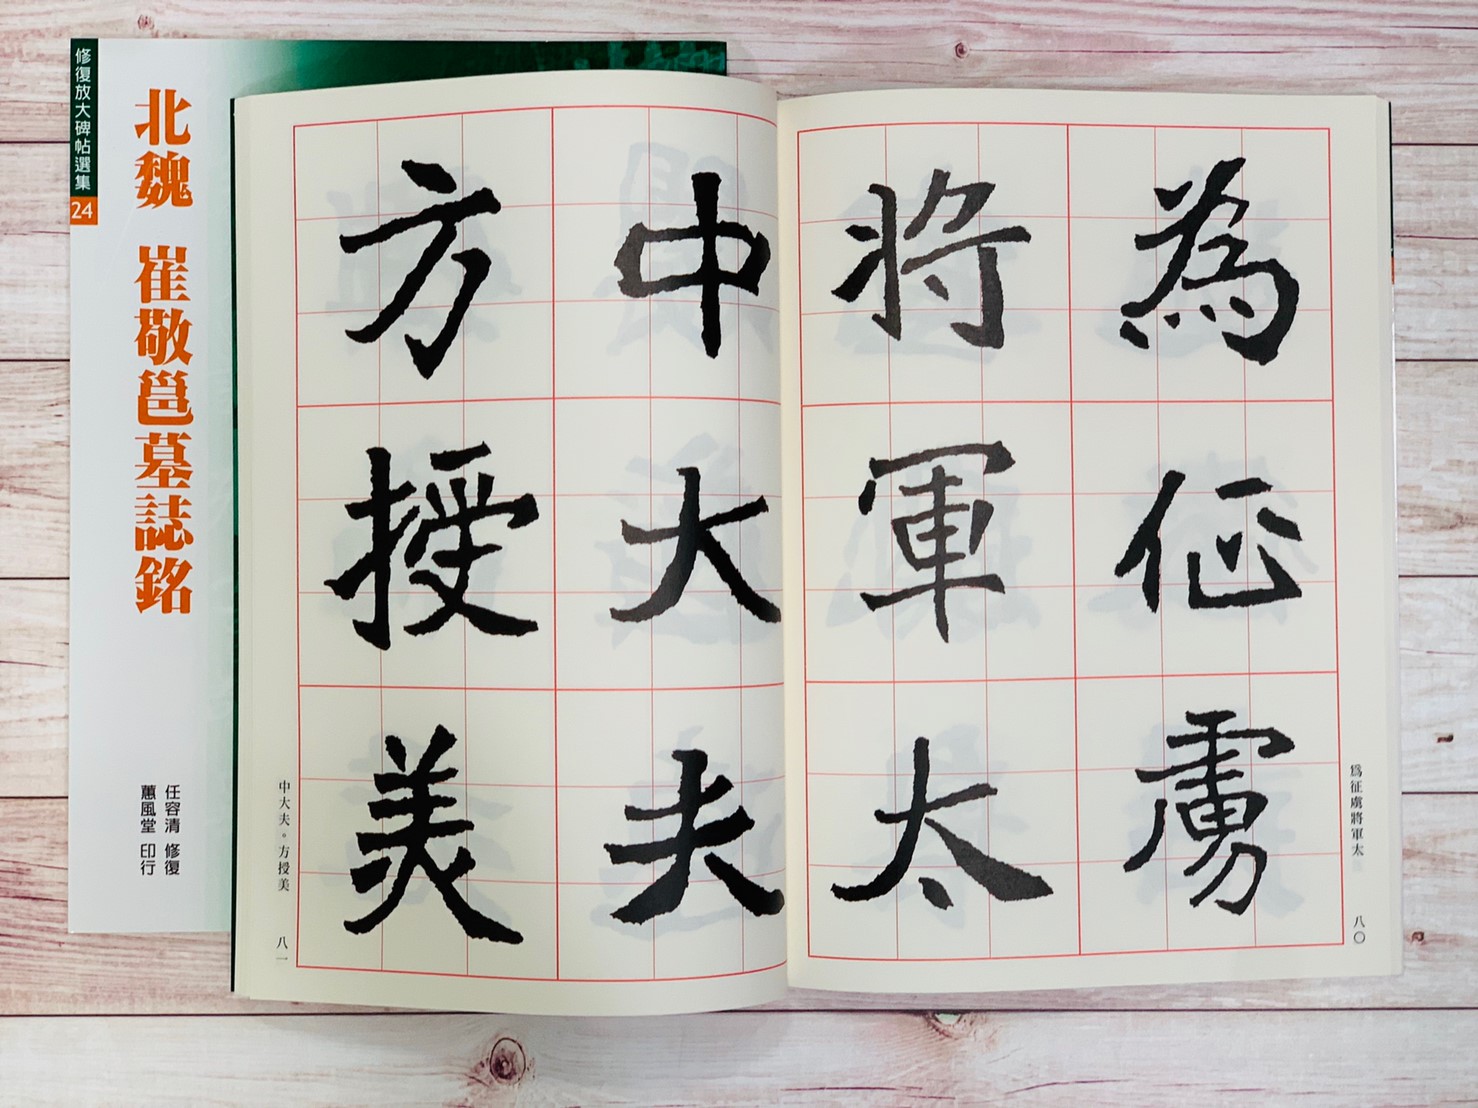 修復放大碑帖選集
24
北魏 崔敬邕墓誌銘
任容清 修復
蕙風堂 印行
為征虜
將軍太
中大夫
方授美
為征虜將軍太
八〇
中大夫。方授美
八一